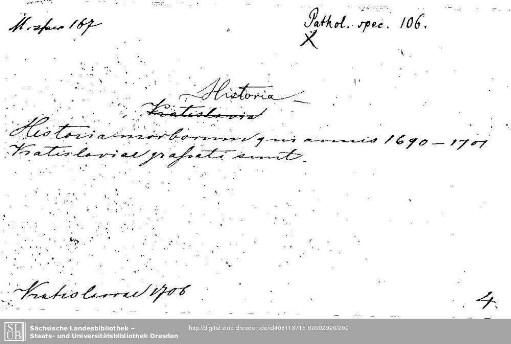 M. spec 167
Pathol. spec. 106.
X
Historia
Vratislavia
Historia morborum qui annis 1690 - 1701
Vratislaviae grassati sunt.
Vratislaviae 1706
4.
SLUB
Sächsische Landesbibliothek –
Staats- und Universitätsbibliothek Dresden